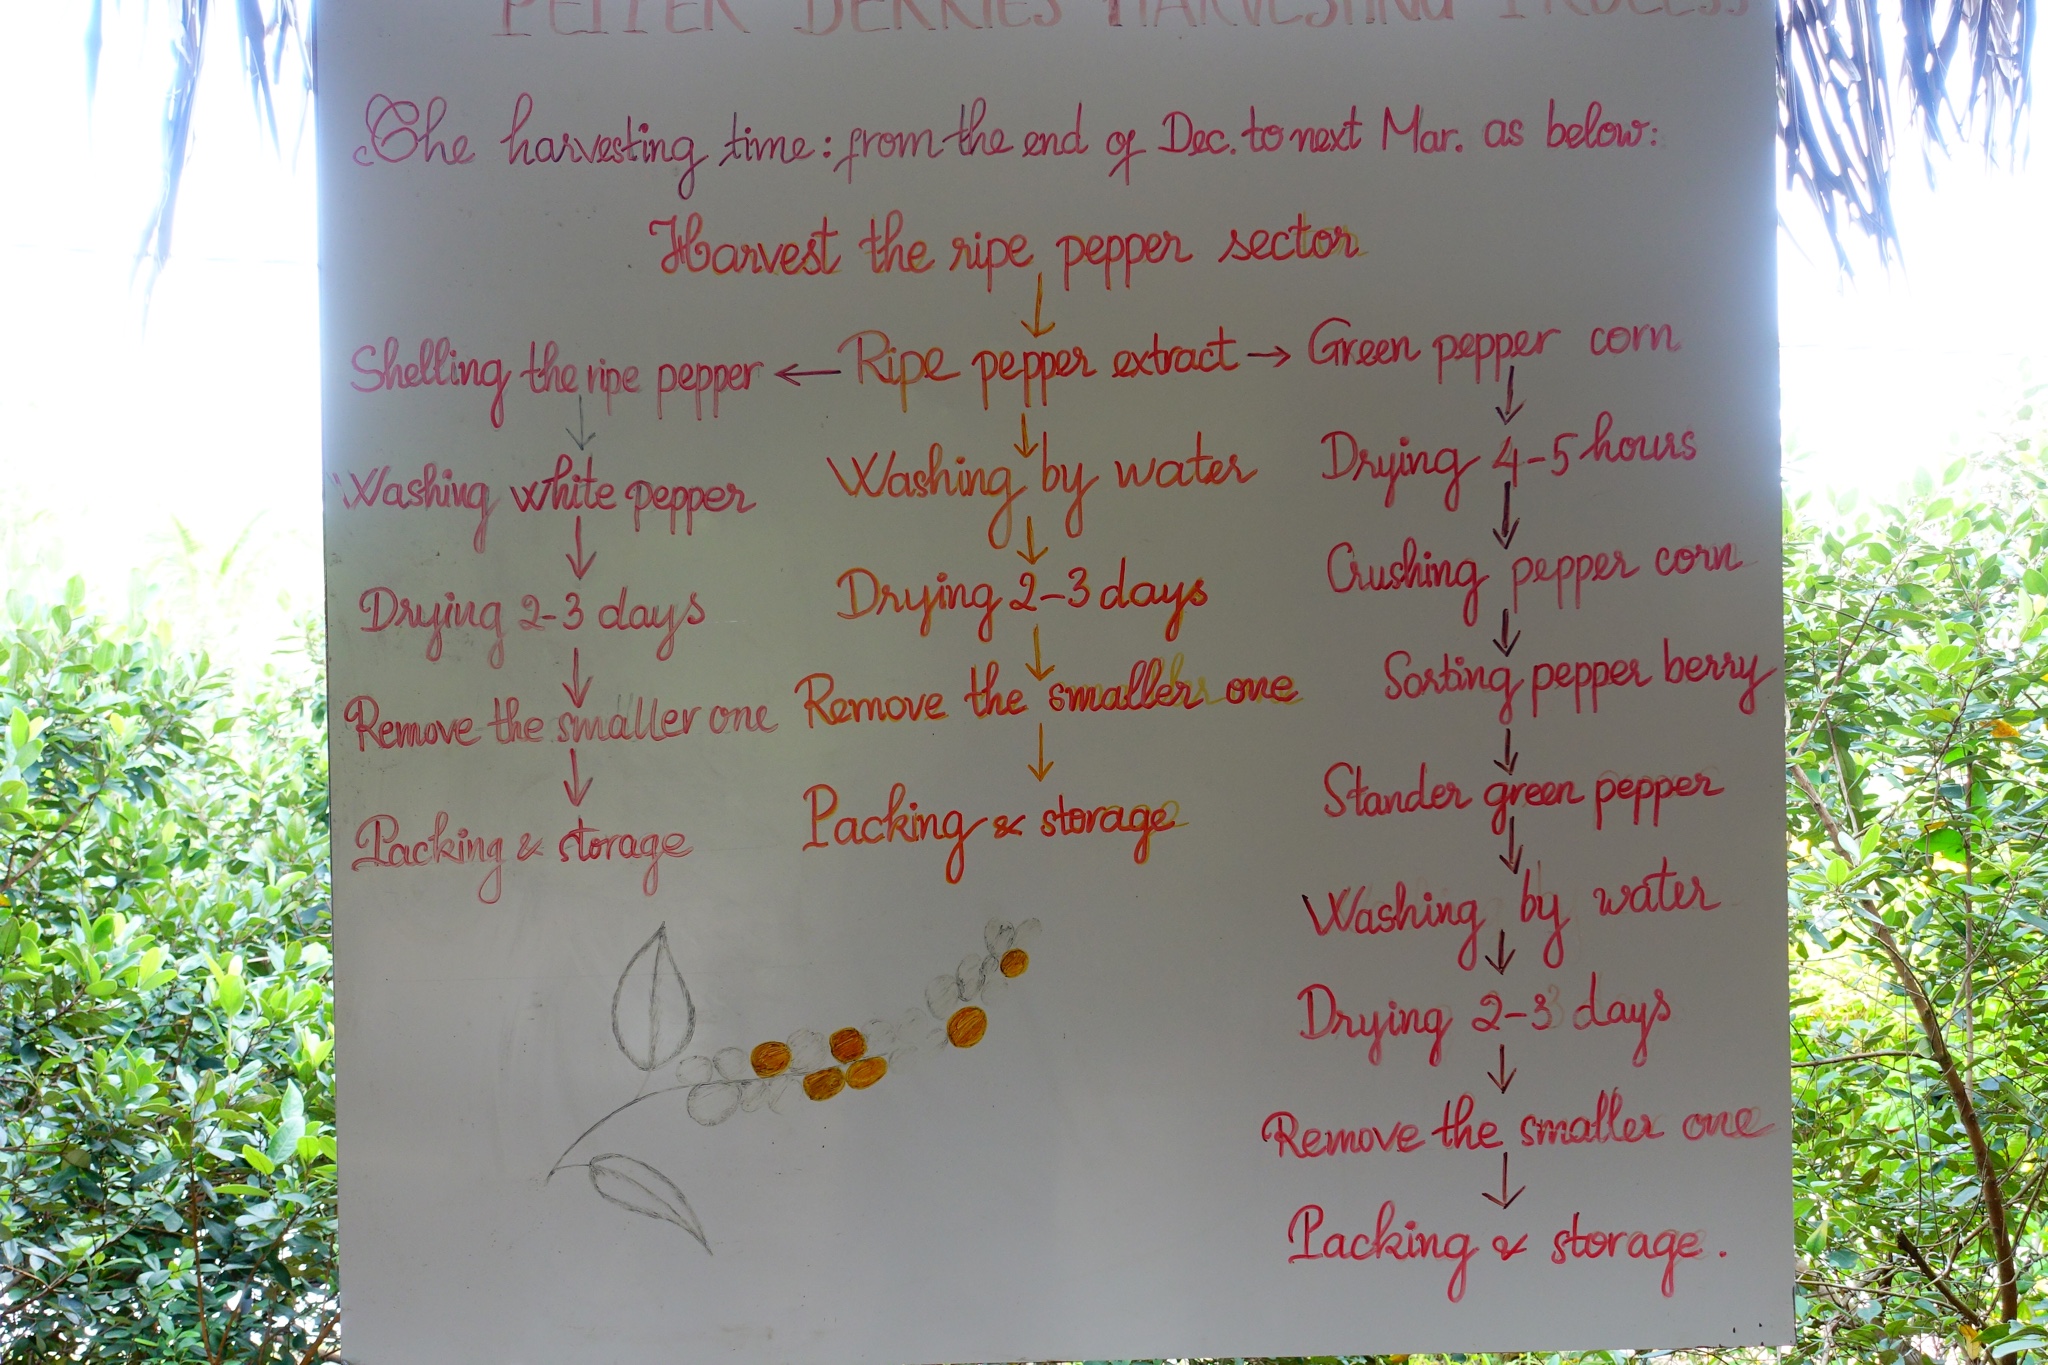 PEPPER BERRIES HARVESTING PROCESS
The harvesting time: from the end of Dec. to next Mar. as below:
Harvest the ripe pepper sector
Shelling the ripe pepper ← Ripe pepper extract → Green pepper corn
Washing white pepper
Drying 2-3 days
Remove the smaller one
Packing & storage
Washing by water
Drying 2-3 days
Remove the smaller one
Packing & storage
Drying 4-5 hours
Crushing pepper corn
Sorting pepper berry
Stander green pepper
Washing by water
Drying 2-3 days
Remove the smaller one
Packing & storage.